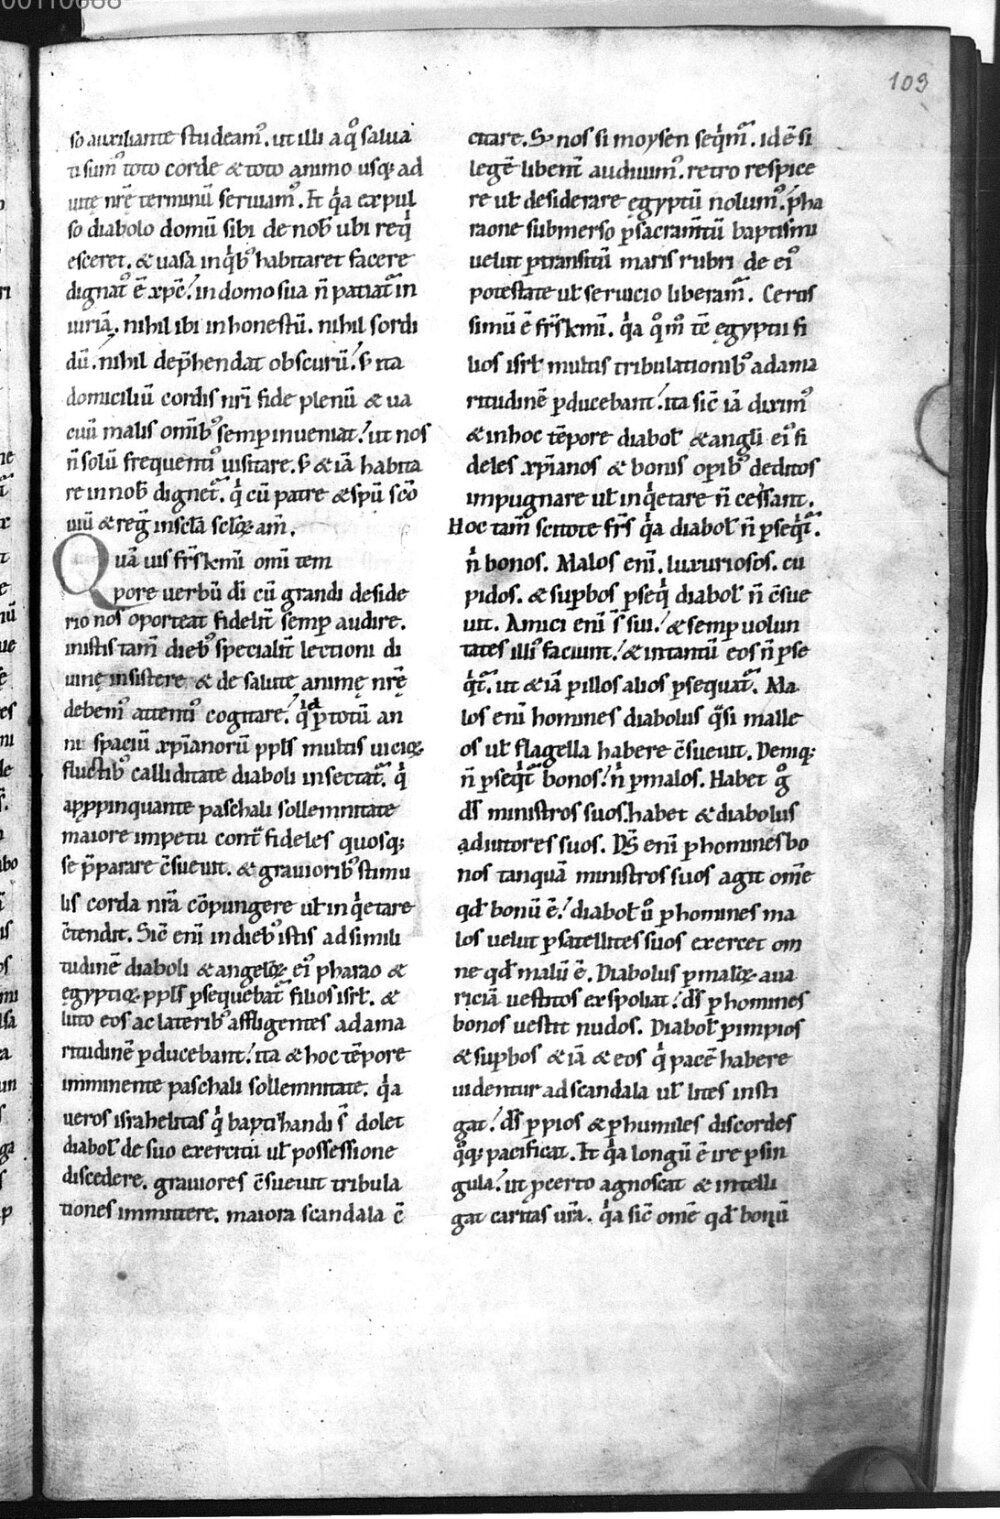 00110688
109
so auxiliante studeam᷒. ut illi a q̊ salua
ti sum᷒ toto corde & toto animo usq; ad
uitę nrę̄ terminū seruiam᷒. Et q̍a expul
so diabolo domū sibi de nob̄ ubi req̍
esceret. & uasa in q̍b᷒ habitaret facere
dignat᷒ ē xp̄c. in domo sua n̄ patiat᷑ in
iuriā. nihil ibi inhonestū. nihil sordi
dū. nihil dep̄hendat obscurū. s; ita
domiciliū cordis nr̄i fide plenū & ua
cuū malis omīb᷒ semp inueniat. ut nos
n̄ solū frequent᷒ uisitare. s; & iā habita
re in nob̄ dignet᷑. q̍ cū patre & sp̄u sc̄o
uiū & reḡ in sc̄la scl̄oꝝ am̄.
Quāuis fr̄s km̄i omī tem
pore uerbū dī cū grandi deside
rio nos oporteat fidelit̄ semp audire.
in istis tam̄ dieb᷒ specialit̄ lectioni di
uinę insistere. & de salute animę nrę̄
debem᷒ attent᷒ cogitare. q̍d p totū an
ni spaciū xp̄ianorū pp̄ls multis uicioꝝ
fluctib᷒ calliditate diaboli insectat᷑. q̍
apppinquante paschali sollemnitate
maiore impetu cont̄ fideles quosq;
se p̄parare c̄sueuit. & grauiorib᷒ stimu
lis corda nr̄a cōpungere ut̄ inq̍etare
c̄tendit. Sic̄ eni in dieb᷒ istis ad simili
tudinē diaboli & angeloꝝ ei᷒ pharao &
ęgyptioꝝ pp̄ls psequebat᷑ filios isrl̄. &
luto eos ac laterib᷒ affligentes ad ama
ritudinē pducebant. ita & hoc tēpore
imminente paschali sollemnitate. q̍a
ueros israhelitas q̍ baptizandi s̄ dolet
diabol᷒ de suo exercitū ut̄ possessione
discedere. grauiores c̄sueuit tribula
tiones inmittere. maiora scandala c̄
citare. S; nos si moysen seq̍m᷑. id ē si
legē libent̄ audiuim᷒. retro respice
re ut̄ desiderare ęgyptū nolum᷒. pha
raone submerso p sacram̄tū baptismi
uelut p transitū maris rubri de ei᷒
potestate ut̄ seruicio liberam᷑. Certis
simū ē fr̄s km̄i. q̍a q̊m̊ tē ęgyptii fi
lios isrl̄ multis tribulationib᷒ ad ama
ritudinē pducebant. ita sic̄ iā dixim᷒
& in hoc tēpore diabol᷒ & angli ei᷒ fi
deles xp̄ianos & bonis opib᷒ deditos
impugnare ut̄ inq̍etare n̄ cessant.
Hoc tam̄ scitote fr̄s q̍a diabol᷒ n̄ pseq̍t᷑.
n̍ bonos. Malos eni. luxuriosos. cu
pidos. & supbos pseq̍ diabol᷒ n̄ c̄sue
uit. Amici eni s̄ sui. & semp uolun
tates illi᷒ faciunt. & in tantū eos n̄ pse
q̍t᷑. ut & iā p illos alios psequat᷑. Ma
los eni homines diabolus q̍si malle
os ut̄ flagella habere c̄sueuit. Deniq;
n̄ pseq̍t᷑ bonos. n̍ p malos. Habet g̊
ds̄ ministros suos. habet & diabolus
adiutores suos. Ds̄ eni p homines bo
nos tanquā ministros suos agit om̄e
qd̄ bonū ē. diabol᷒ ū p homines ma
los uelut p satellites suos exercet om
ne qd̄ malū ē. Diabolus p maloꝝ aua
riciā uestitos exspoliat. ds̄ p homines
bonos uestit nudos. Diabol᷒ p impios
& supbos & iā & eos q̍ pacē habere
uidentur ad scandala ut̄ lites insti
gat. ds̄ p pios & p humiles discordes
q̊q; pacificat. Et q̍a longū ē ire p sin
gula. ut p certo agnoscat & intelli
gat caritas ur̄a. q̍a sic̄ om̄e qd̄ bonū